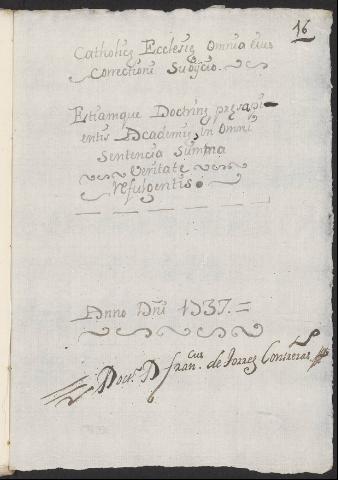 16
Catholicę Ecclesię Omnia eius
Correctioni Subijcio.
Etiamque Doctrinę pręsapi-
entis Academię, in Omni
Sentencia Summa
Veritatę
refulgentis.
Anno Dñi 1737. =
Doct. D Fran.cus de Torrez Contreras